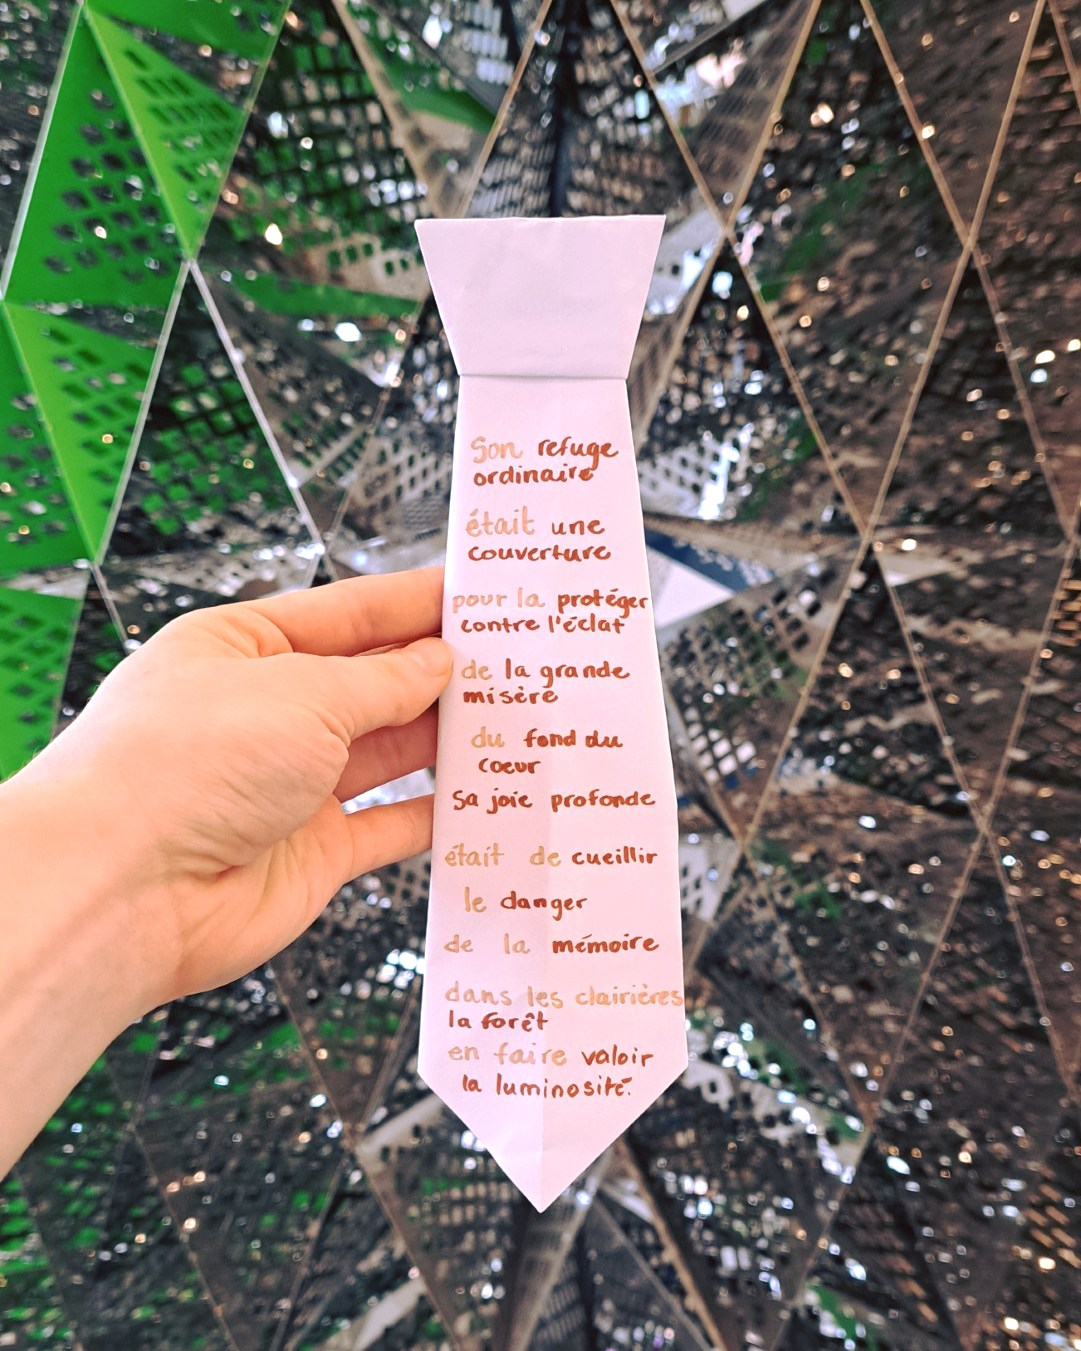 Son refuge
ordinaire
était une
couverture
pour la protéger
contre l'éclat
de la grande
misère
du fond du
coeur
Sa joie profonde
était de cueillir
le danger
de la mémoire
dans les clairières
la forêt
en faire valoir
la luminosité.